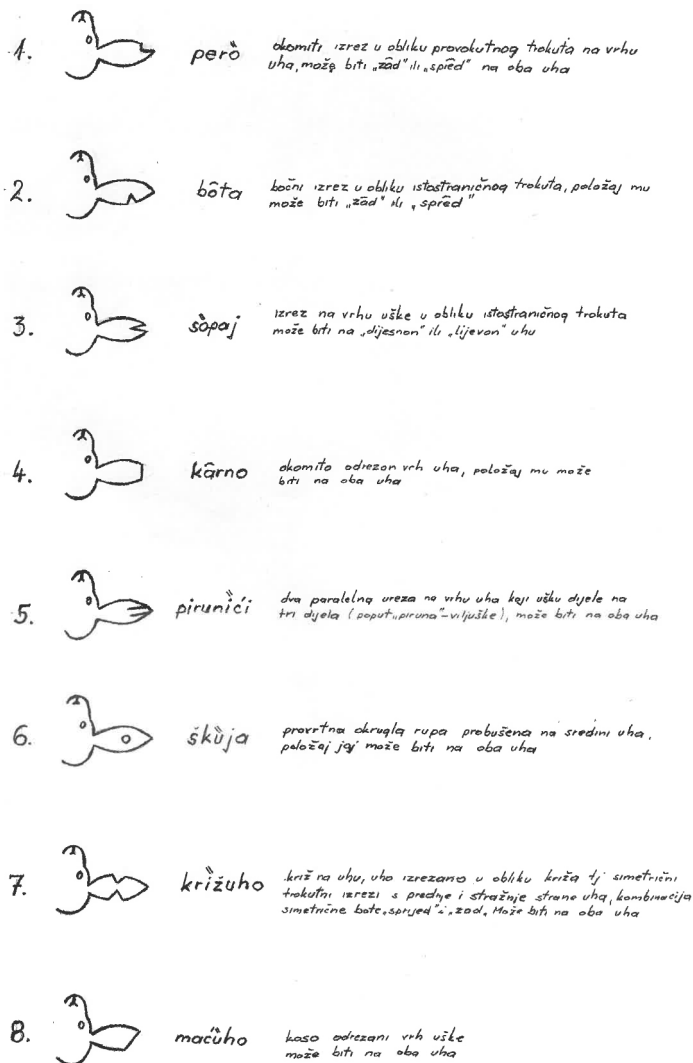 1. perȍ okomiti izrez u obliku pravokutnog trokuta na vrhu
uha, može biti „zȃd" ili „sprȇd" na oba uha
2. bȏta bočni izrez u obliku istostraničnog trokuta, položaj mu
može biti „zȃd" ili „sprȇd"
3. šȍpaj izrez na vrhu uške u obliku istostraničnog trokuta
može biti na „dijesnon" ili „lijevon" uhu
4. kȃrno okomito odrezan vrh uha, položaj mu može
biti na oba uha
5. pirunȉći dva paralelna ureza na vrhu uha koji ušku dijele na
tri dijela (poput „piruna"-viljuške), može biti na oba uha
6. škȕja provrtna okrugla rupa probušena na sredini uha,
položaj joj može biti na oba uha
7. krȉžuho križ na uhu, uho izrezano u obliku križa tj simetrični
trokutni izrezi s prednje i stražnje strane uha, kombinacija
simetrične bote „sprijed" i „zad„ Može biti na oba uha
8. macȕho koso odrezani vrh uške
može biti na oba uha